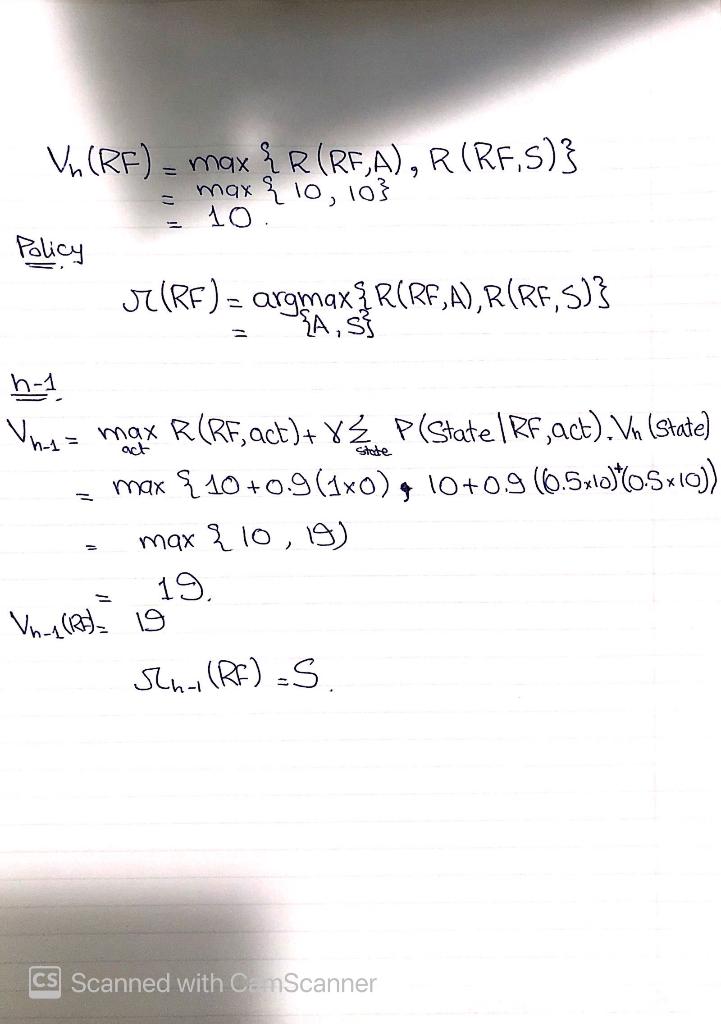 Vₕ(RF) = max { R(RF,A), R(RF,S)}
= max { 10, 10}
= 10.
Policy
π(RF) = argmax{ R(RF,A), R(RF,S)}
= {A, S}
h-1
Vₕ₋₁ = max_act R(RF,act) + γ Σ_state P(State|RF,act). Vₕ(State)
= max { 10+0.9(1x0) , 10+0.9((0.5x10)+(0.5x10))
= max { 10, 19)
= 19.
Vₕ₋₁(RF)= 19
πₕ₋₁(RF) = S.
CS Scanned with CamScanner